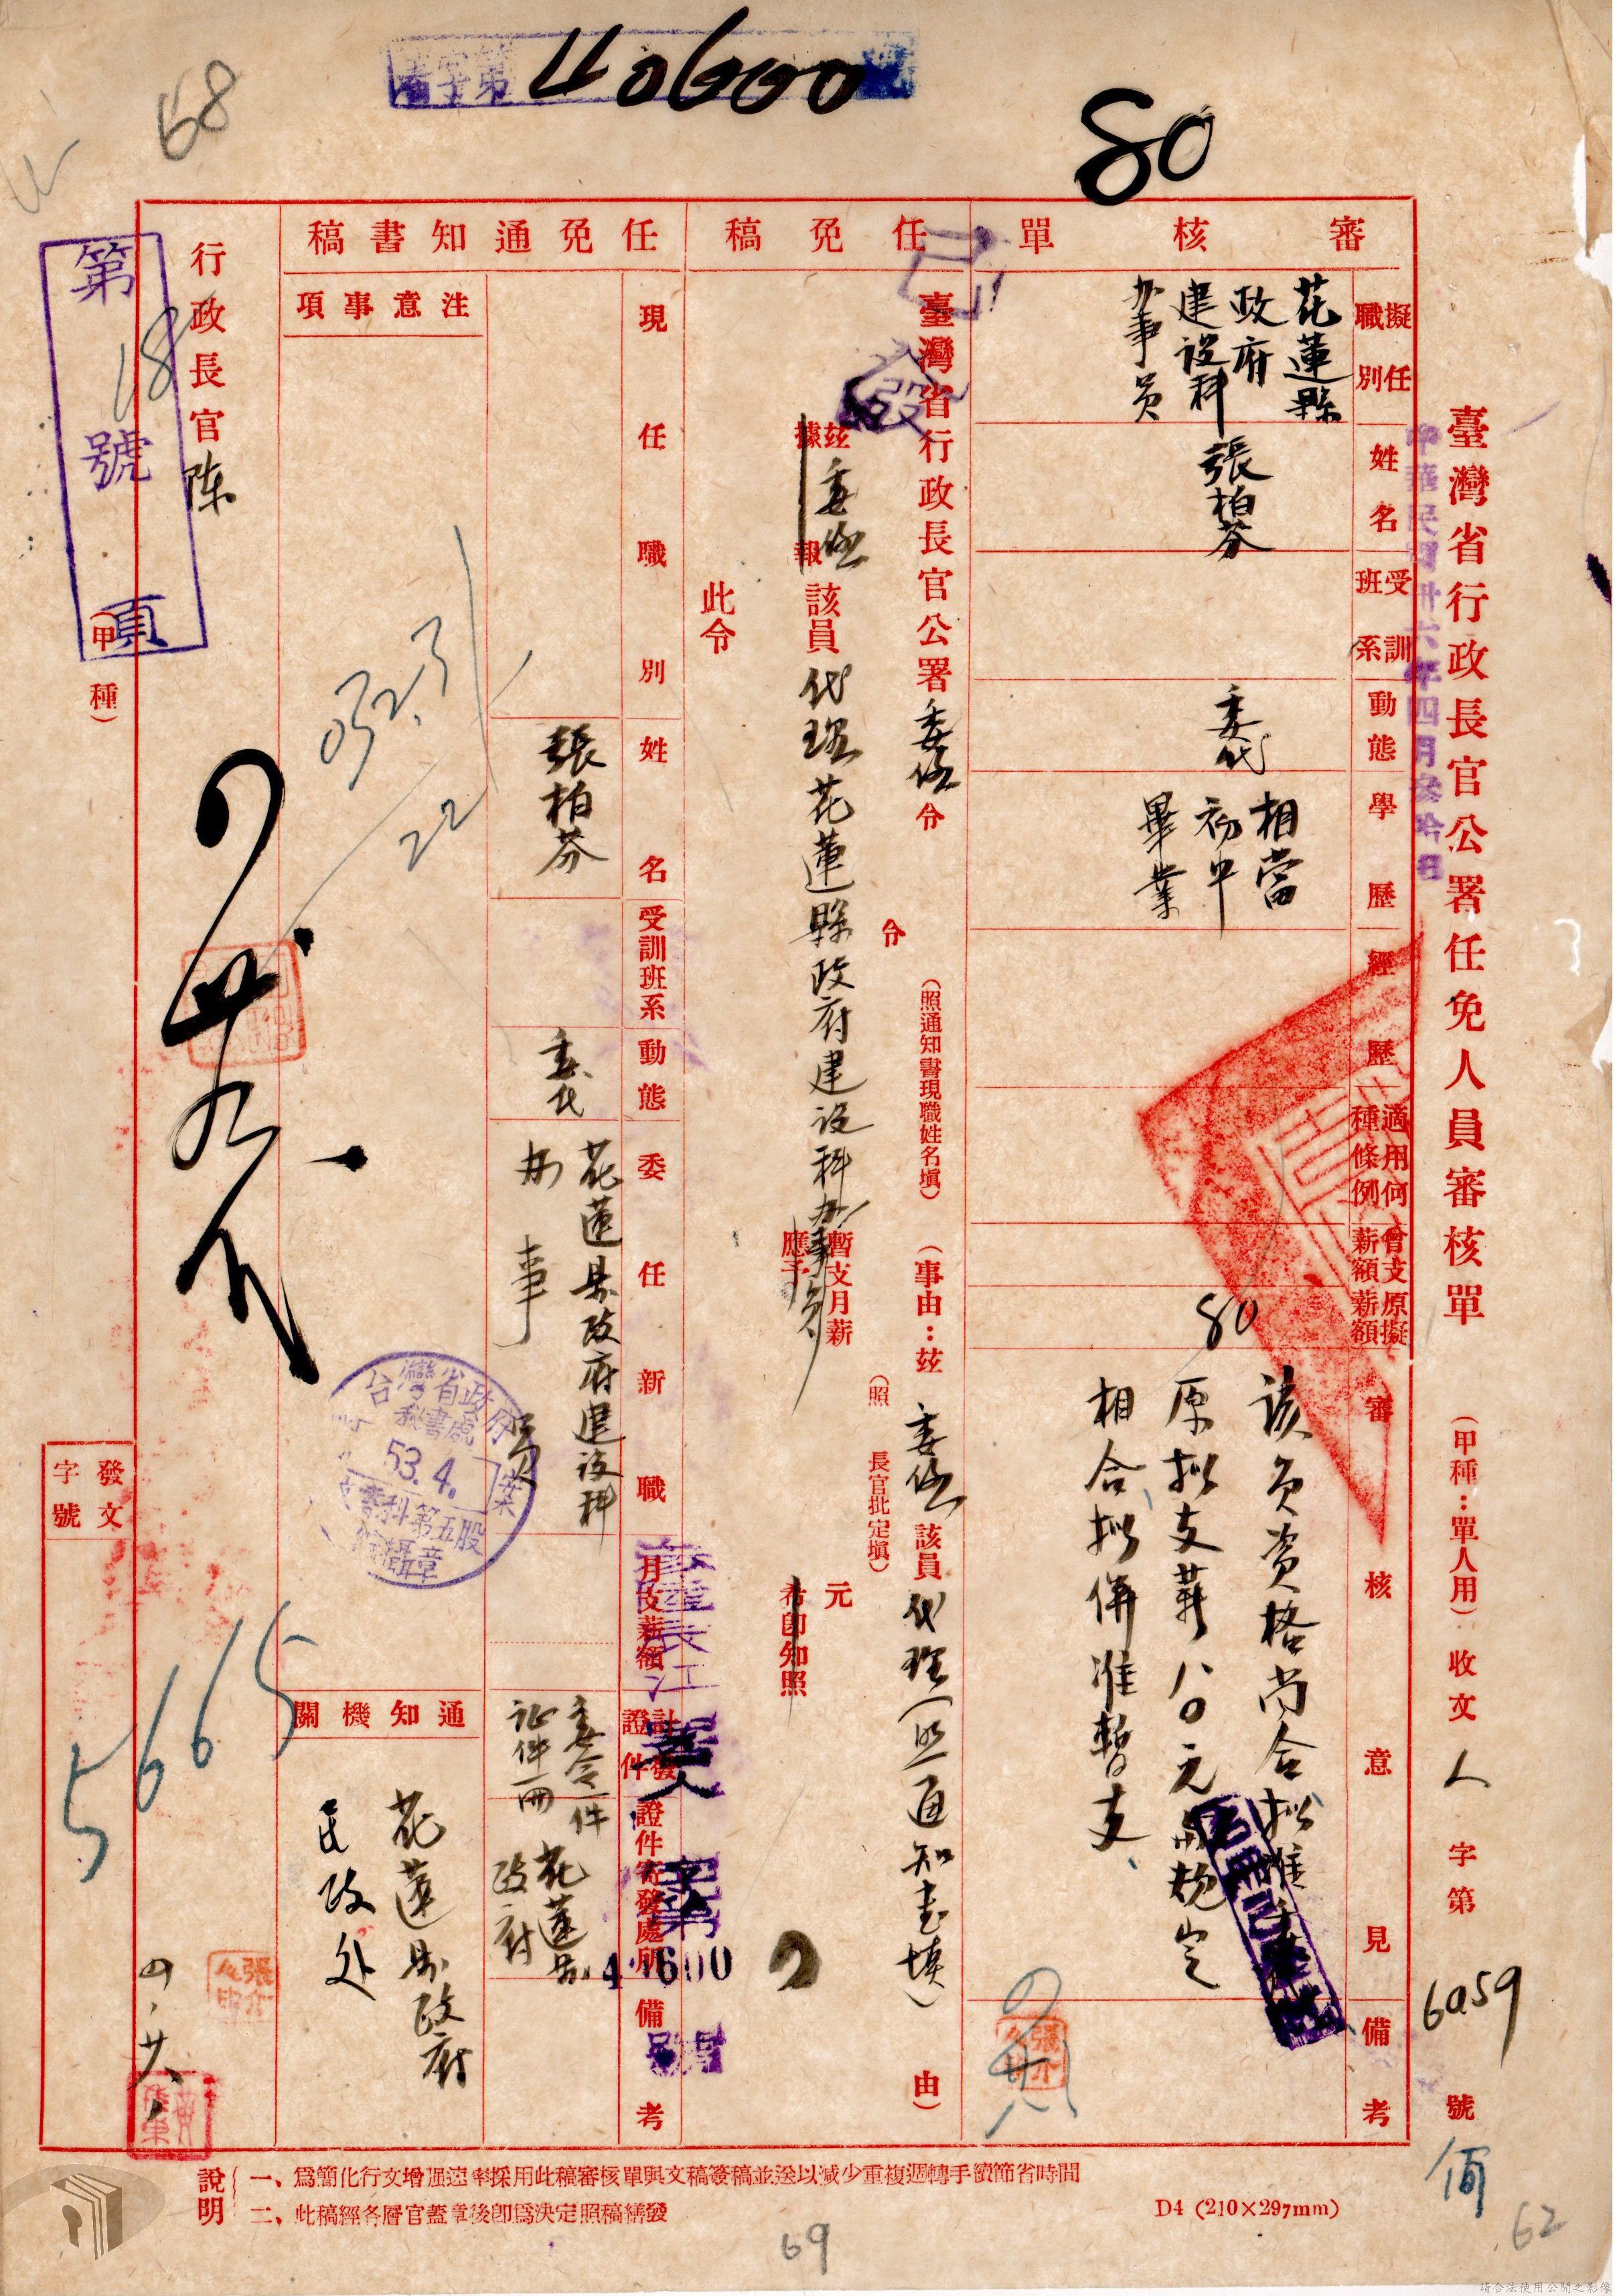 40600
80
68
臺灣省行政長官公署任免人員審核單
(甲種：單人用)
收文 人 字第 6059 號
中華民國卅六年四月叁拾日
審核單
擬任職別
花蓮縣
政府
建設科
办事員
姓名
張柏芬
受訓班系
動態
委代
學歷
相當
初中
畢業
經歷
適用何種條例
曾支薪額
原擬薪額
80
審核意見
該員資格尚合拟准委代
原拟支薪八〇元與規定
相合拟併准暫支
備考
任免稿
臺灣省行政長官公署委任令
令
(照通知書現職姓名填)
(事由：茲 委任 該員 代理(照通知書填) 由)
茲據 委任 報
該員 代理 花蓮縣政府建設科办事員
暫支月薪
應予
(照 長官批定填)
元
希即知照
此令
任免通知書稿
現任職別
姓名
張柏芬
受訓班系
動態
委代
委任新職
花蓮县政府建設科
办事員
月支薪額
計發證件
委令一件
証件一冊
證件寄發處所
花蓮县
政府
備考
署人字第
40600
號
注意事項
通知機關
花蓮县政府
民政处
052.3
22
行政長官陳
第 18 號 頁
(甲種)
台灣省政府
秘書處
53.4.
第五股
攝章
發文字號
5665
四.廿八
說明
一、爲簡化行文增强速率採用此稿審核單與文稿簽稿並送以減少重複週轉手續節省時間
二、此稿經各層官蓋章後即爲決定照稿繕發
D4 (210×297mm)
69
62
請合法使用公開之影像